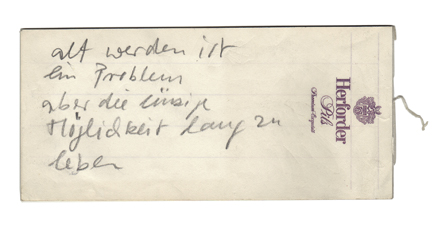 alt werden ist
ein Problem
aber die einzige
Möglichkeit lang zu
leben
Herforder
Pils
Premium Exquisit